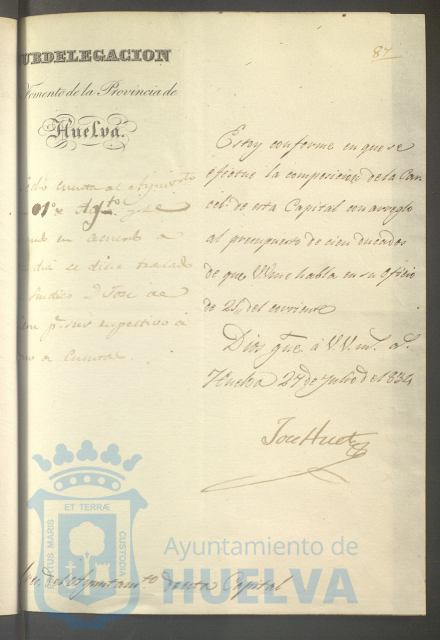 87
UBDELEGACION
Fomento de la Provincia de
Huelva.
Estoy conforme en que se
efectue la composicion de la Car
cel de esta Capital con arreglo
al presupuesto de cien ducados
de que VV me habla en su oficio
de 25 del corriente
Dios gue á V.V. ms. as.
Huelva 27 de Julio de 1834
Jose Huet
cuenta al Ayunto
01º Agto
se dice traslado
Sindico D. Jose de
de Cuental
del Ayuntamto. de esta Capital
ET TERRÆ
PORTUS MARIS
CUSTODIA
Ayuntamiento de
HUELVA